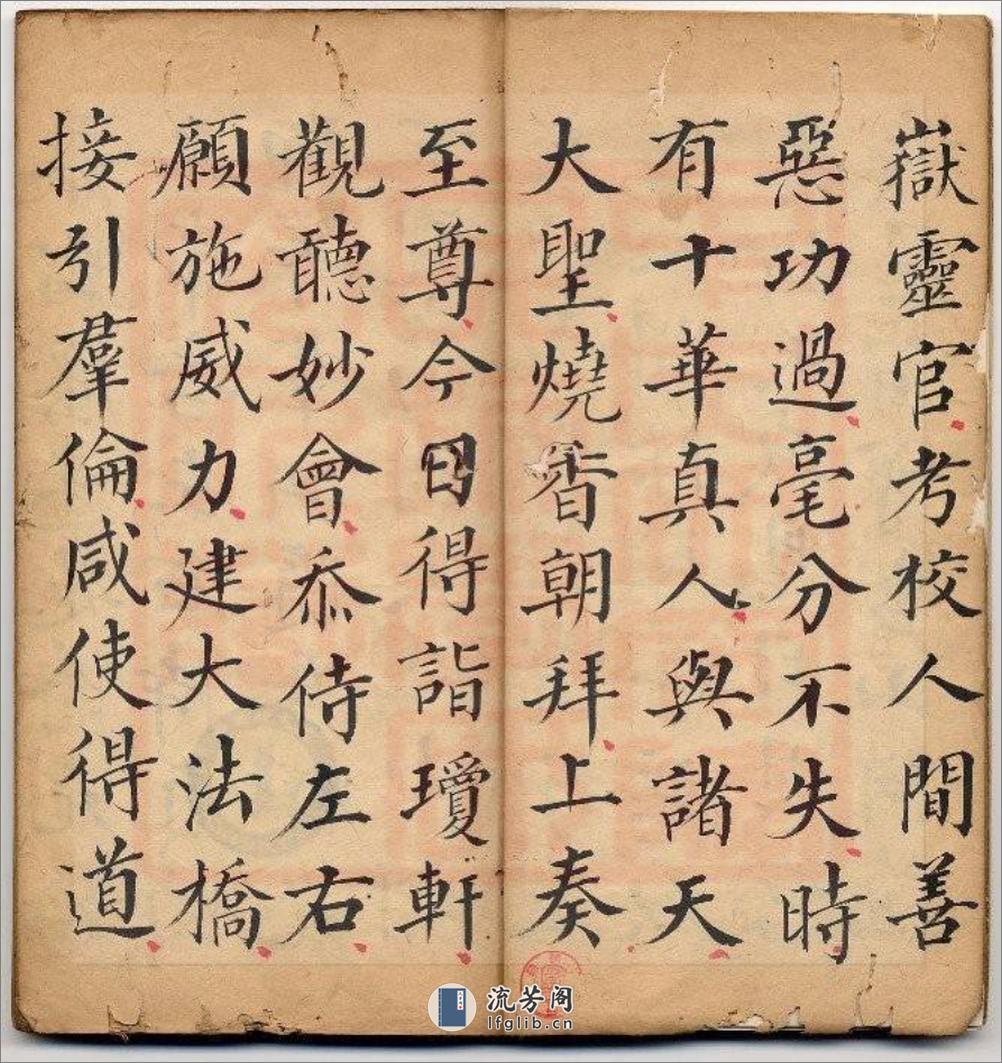 嶽靈官考校人間善
惡功過毫分不失時
有十華真人與諸天
大聖燒香朝拜上奏
至尊今日得詣瓊軒
觀聽妙會忝侍左右
願施威力建大法橋
接引羣倫咸使得道
流芳阁
lfglib.cn